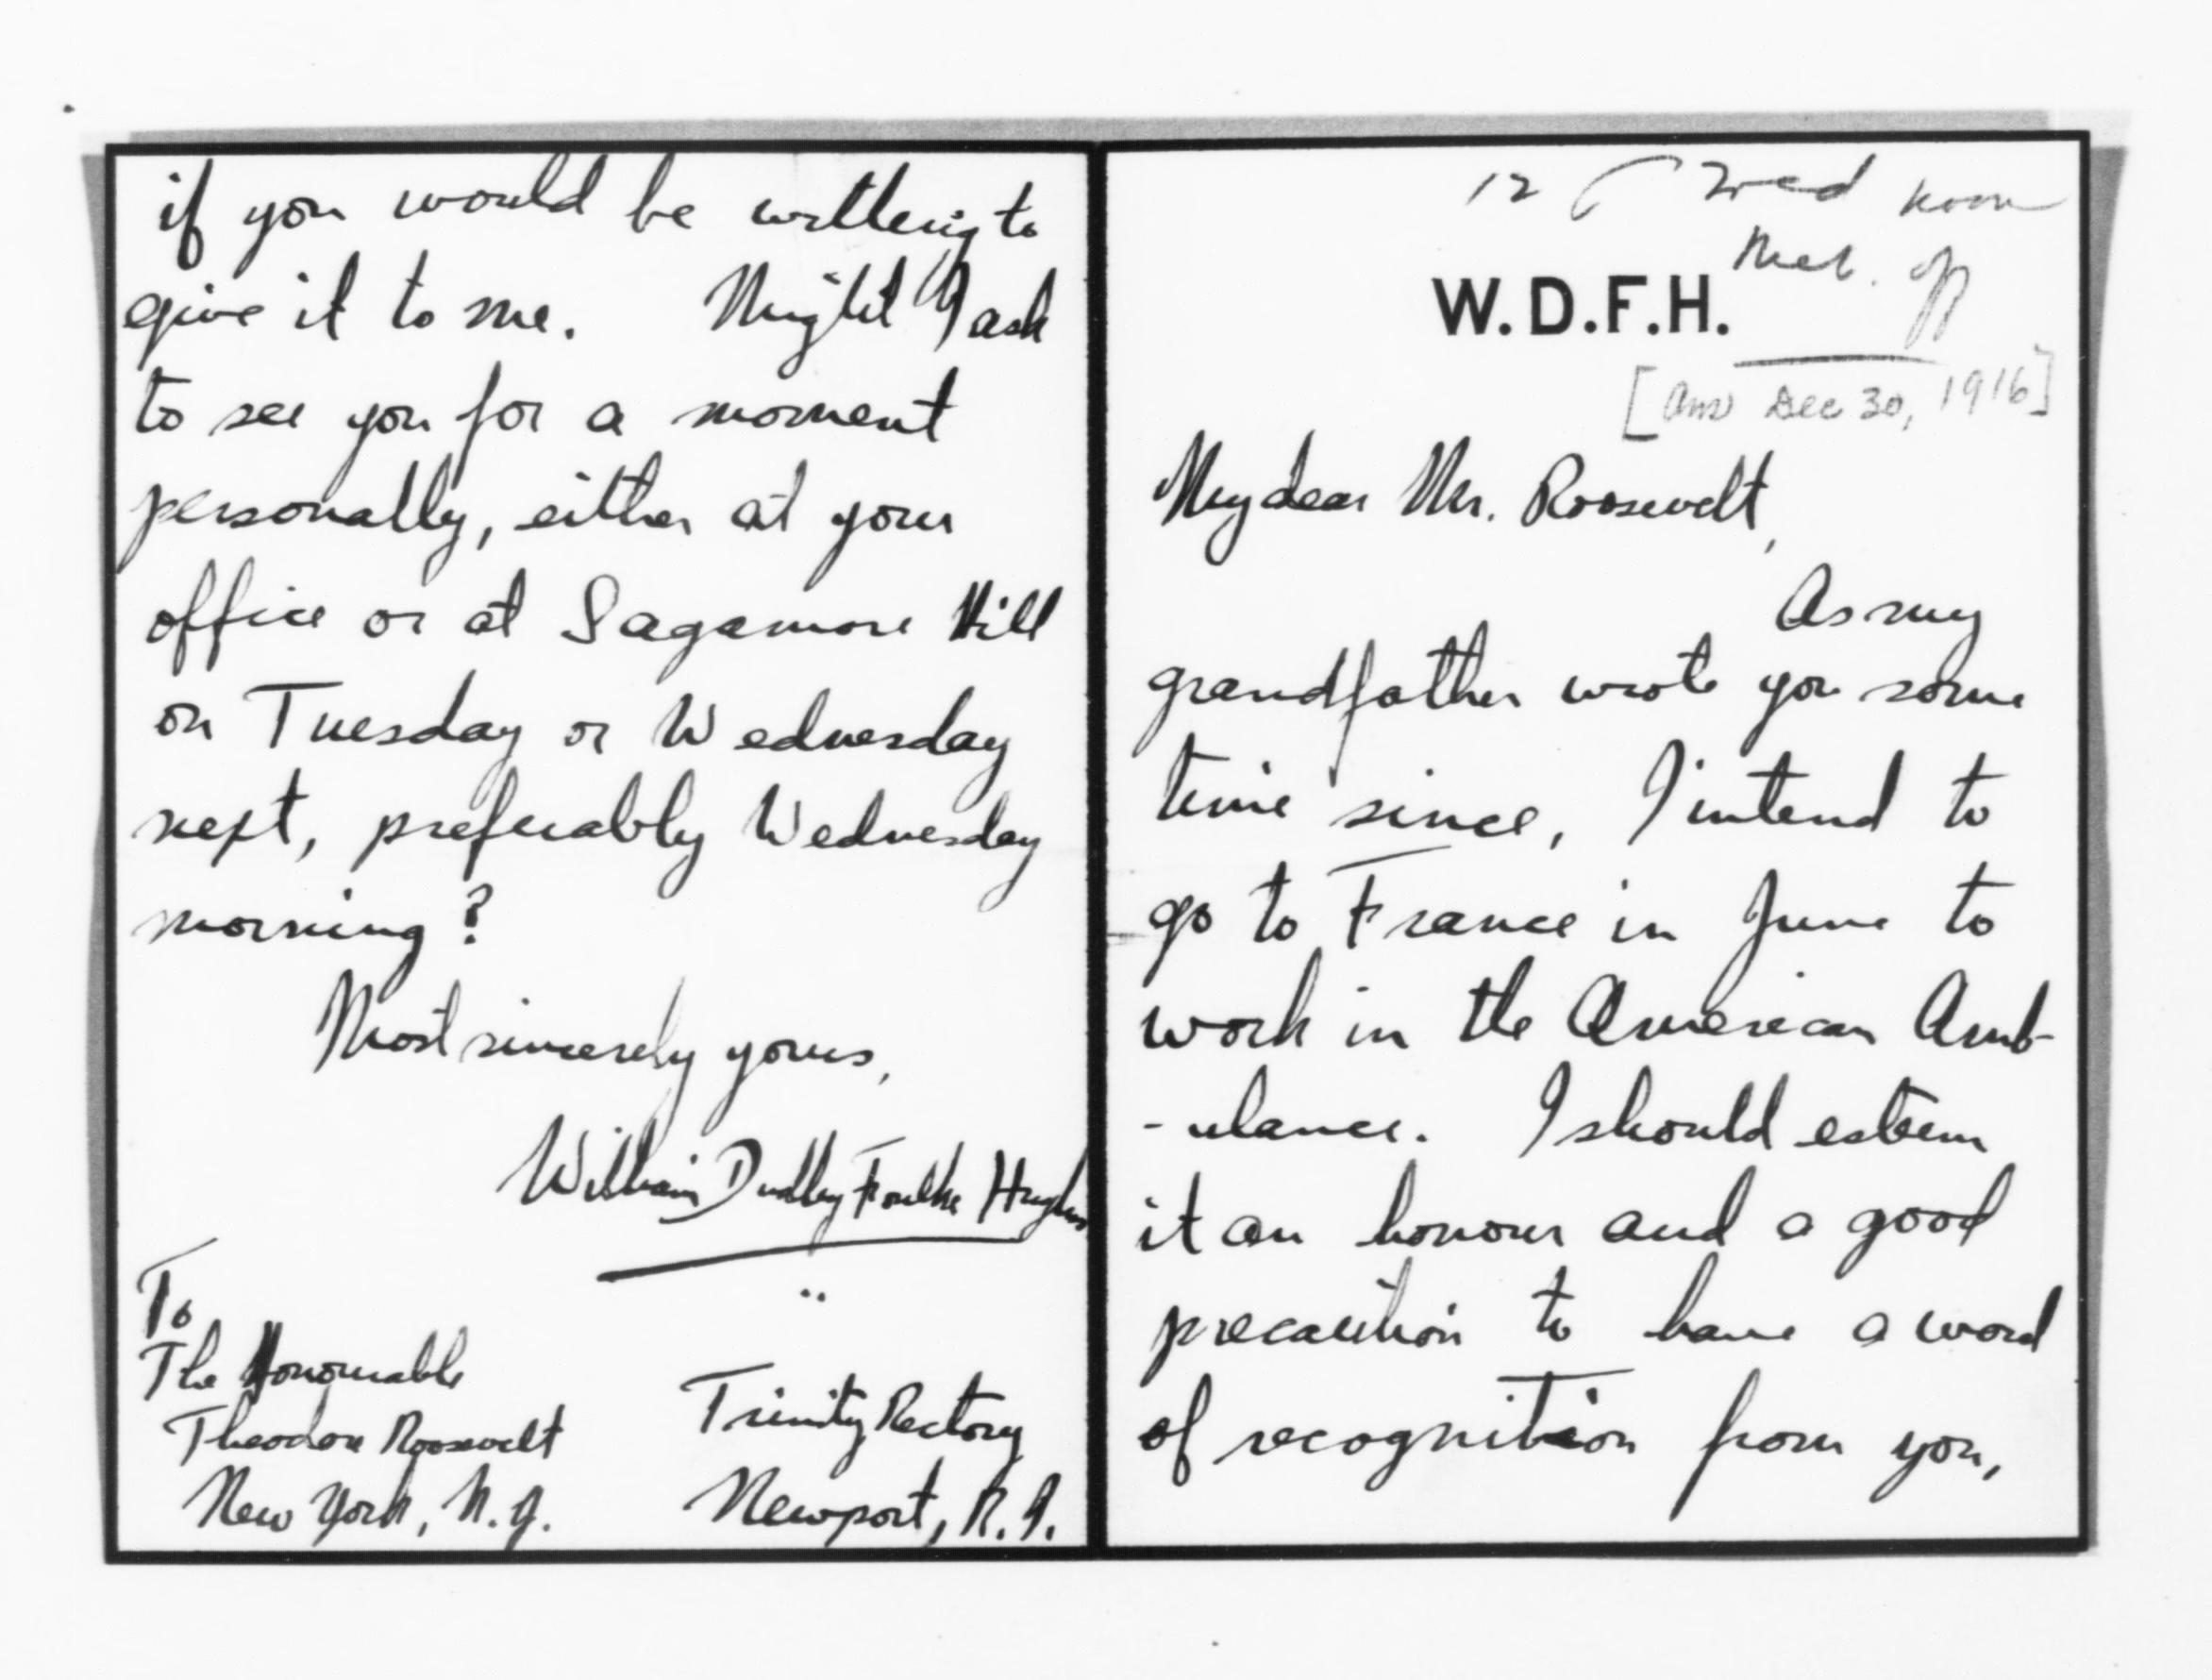 12 Wed noon
Met. off
W.D.F.H.
[Ans Dec 30, 1916]
My dear Mr. Roosevelt,
As my
grandfather wrote you some
time since, I intend to
go to France in June to
work in the American Amb-
-ulance. I should esteem
it an honour and a good
precaution to have a word
of recognition from you,
if you would be willing to
give it to me. Might I ask
to see you for a moment
personally, either at your
office or at Sagamore Hill
on Tuesday or Wednesday
next, preferably Wednesday
morning?
Most sincerely yours,
William Dudley Foulke Hughes
To
The Honourable
Theodore Roosevelt
New York, N.Y.
Trinity Rectory
Newport, R.I.